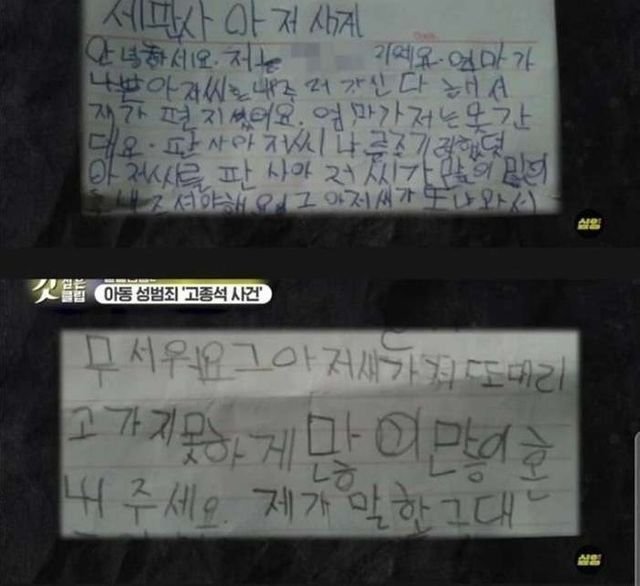 세판사 아저씨게
안녕하세요. 저는 리예요. 엄마가
나쁜 아저씨를 혼내주러 가신다 해서
제가 편지썼어요. 엄마가 저는 못간
대요. 판사 아저씨 나를
아저씨를 판사 아저씨가 많이 많이
혼내 주셔야해요 그 아저새가 또 나와서
아동 성범죄 '고종석 사건'
무서워요 그 아저새가 저 또 대리
고 가지 못하게 많이 많이 혼
내 주세요. 제가 말한 그대